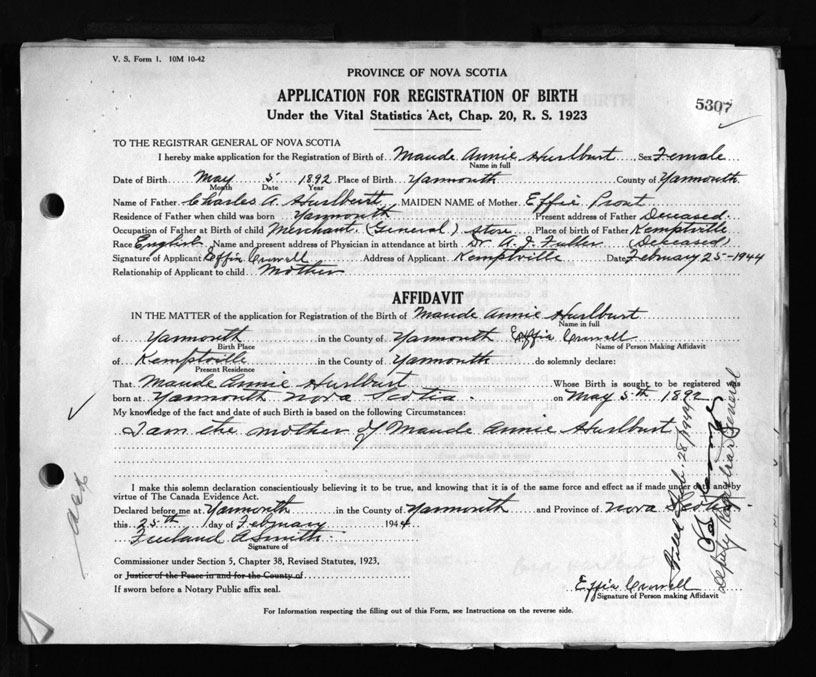 V. S. Form 1. 10M 10-42
PROVINCE OF NOVA SCOTIA
APPLICATION FOR REGISTRATION OF BIRTH
5307
Under the Vital Statistics Act, Chap. 20, R. S. 1923
TO THE REGISTRAR GENERAL OF NOVA SCOTIA
I hereby make application for the Registration of Birth of Maude Annie Hurlburt Sex Female
Name in full
Date of Birth May 5 1892 Place of Birth Yarmouth County of Yarmouth
Month Date Year
Name of Father Charles A. Hurlburt MAIDEN NAME of Mother Effie Prout
Residence of Father when child was born Yarmouth Present address of Father Deceased.
Occupation of Father at Birth of child Merchant (General) store Place of birth of Father Kemptville
Race English Name and present address of Physician in attendance at birth Dr. A. J. Fuller (Deceased)
Signature of Applicant Effie Address of Applicant Kemptville Date February 25-1944
Relationship of Applicant to child Mother
AFFIDAVIT
IN THE MATTER of the application for Registration of the Birth of Maude Annie Hurlburt
Name in full
of Yarmouth in the County of Yarmouth Effie
Birth Place Name of Person Making Affidavit
of Kemptville in the County of Yarmouth do solemnly declare:
Present Residence
That Maude Annie Hurlburt Whose Birth is sought to be registered was
born at Yarmouth Nova Scotia. on May 5th 1892
My knowledge of the fact and date of such Birth is based on the following Circumstances:
I am the mother of Maude Annie Hurlburt
I make this solemn declaration conscientiously believing it to be true, and knowing that it is of the same force and effect as if made under oath and by
virtue of The Canada Evidence Act.
Declared before me at Yarmouth in the County of Yarmouth and Province of Nova Scotia.
this 25th day of February 1944
Freeland A Smith.
Signature of
Commissioner under Section 5, Chapter 38, Revised Statutes, 1923,
or Justice of the Peace in and for the County of
If sworn before a Notary Public affix seal.
Effie
Signature of Person making Affidavit
For Information respecting the filling out of this Form, see Instructions on the reverse side.
Filed Feb. 28/1944
Deputy Registrar General